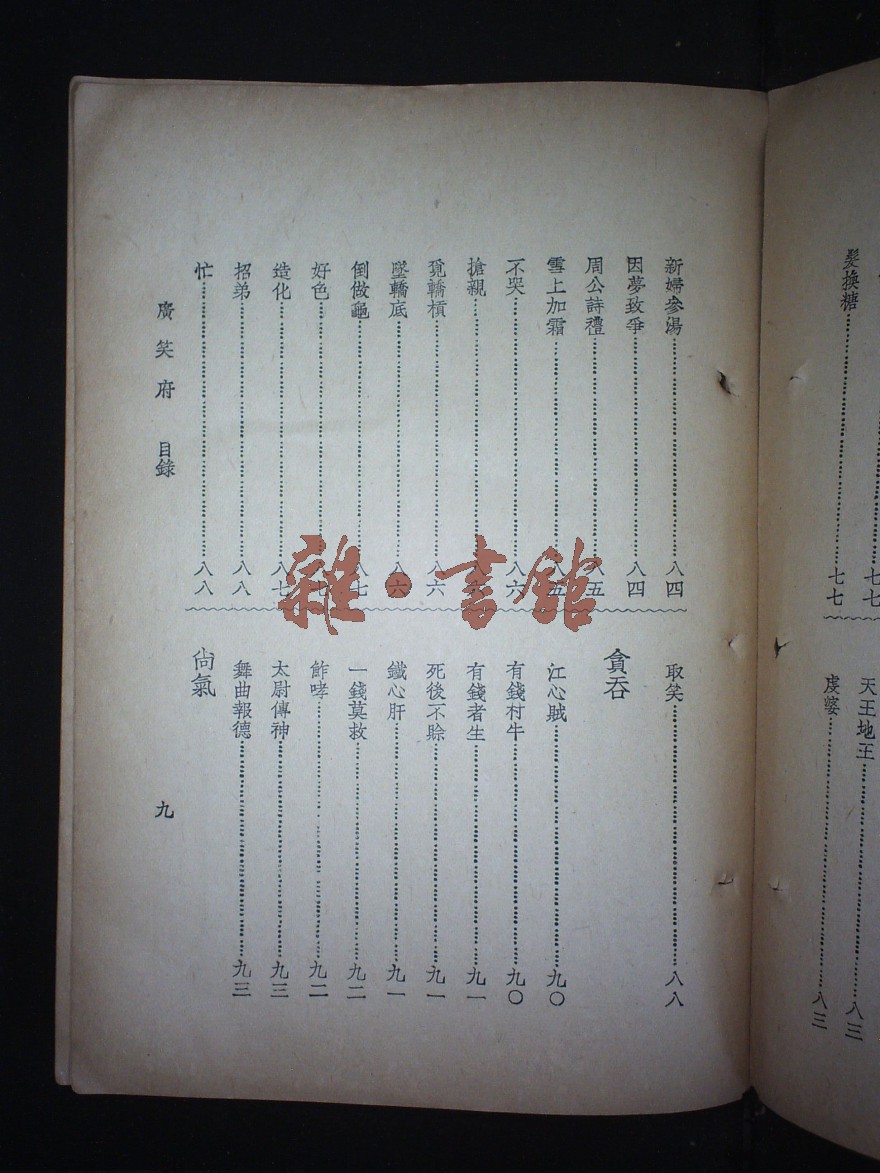 髮換糖……七七
七七
天王地王……八三
虔婆……八三
新婦參湯……八四
因夢致爭……八四
周公詩禮……八五
雪上加霜……八五
不哭……八六
搶親
覓轎槓……八六
墜轎底……八六
倒做龜……八七
好色
造化……八七
招弟……八八
忙……八八
取笑……八八
貪吞
江心賊……九〇
有錢村牛……九〇
有錢者生……九一
死後不賒……九一
鐵心肝……九一
一錢莫救……九二
鮓哮……九二
太尉傳神……九三
舞曲報德……九三
尙氣
廣笑府 目錄
九
雜·書館